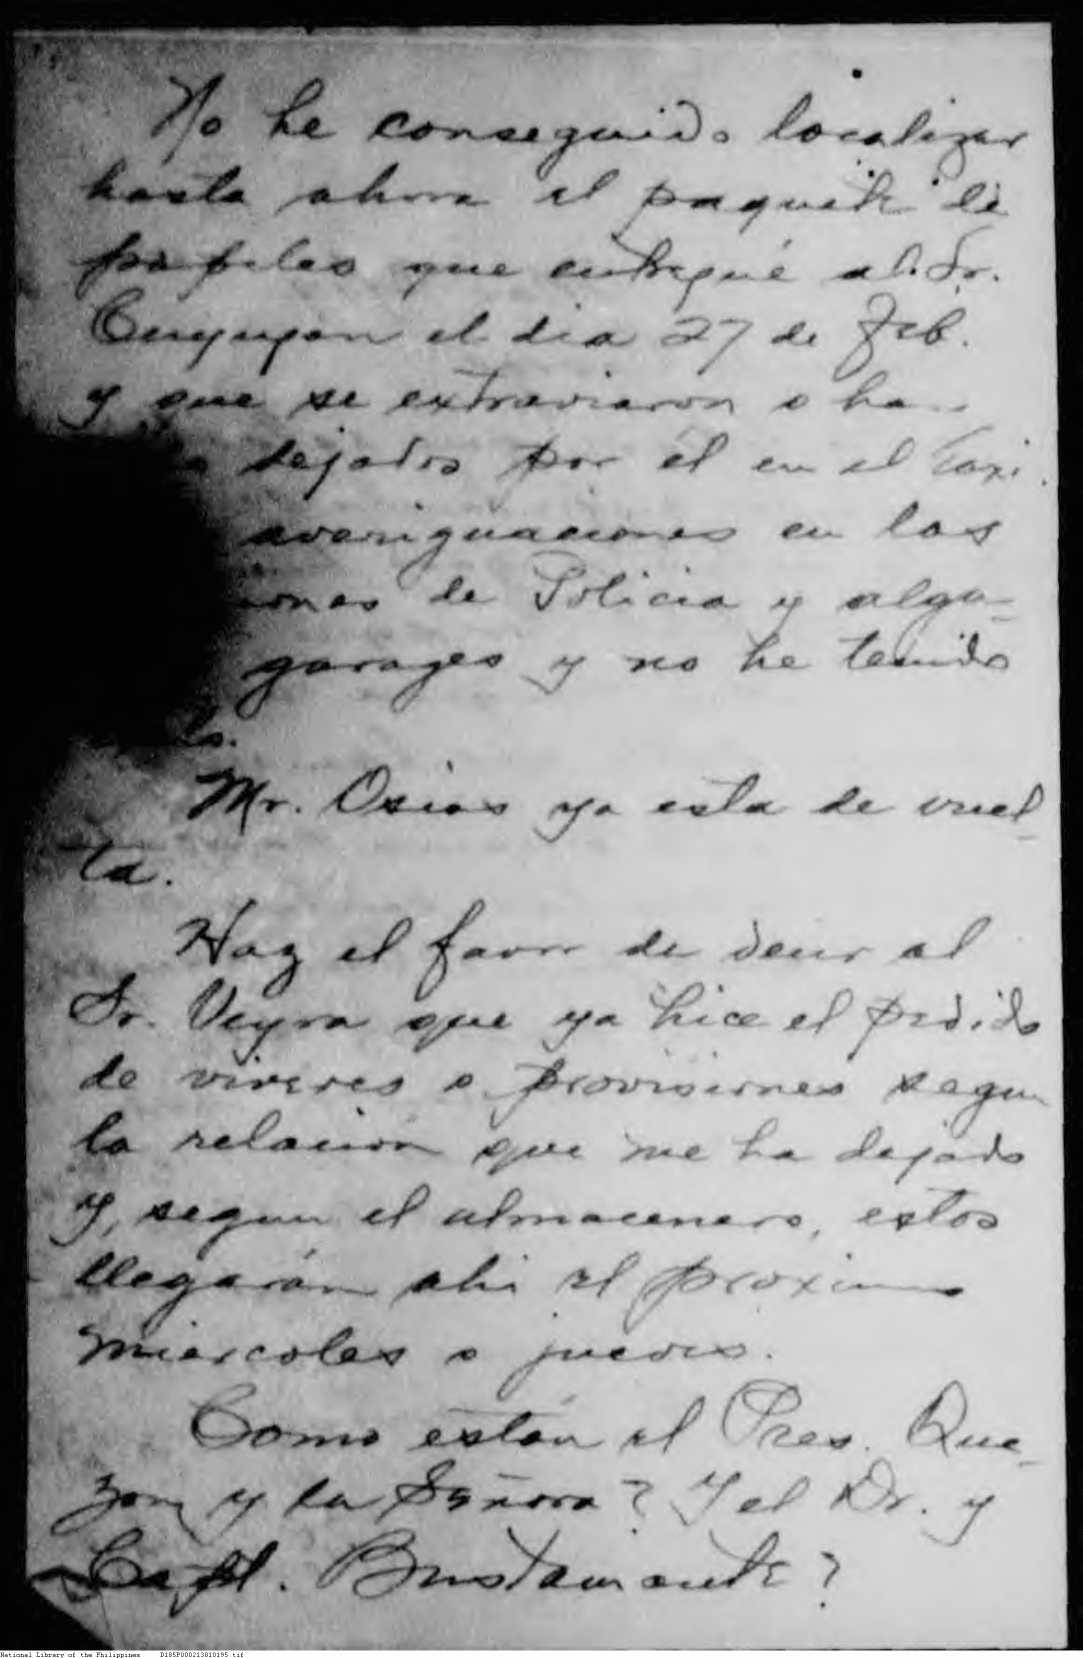 No he conseguido localizar
hasta ahora el paquete de
papeles que entregué al Sr.
Cuyugan el dia 27 de Feb.
y que se extraviaron o ha
dejados por él en el taxi.
averiguaciones en las
iones de Policia y algu-
garages y no he tenido
Mr. Osias ya esta de vuel-
ta.
Haz el favor de decir al
Sr. Veyra que ya hice el pedido
de viveres o provisiones segun
la relacion que me ha dejado
y, segun el almacenero, estos
llegarán ahi el proximo
miercoles o jueves.
Como están el Pres. Que-
zon y la Señora? Y el Dr. y
Capt. Bustamante?
National Library of the Philippines D185P000213810195.tif